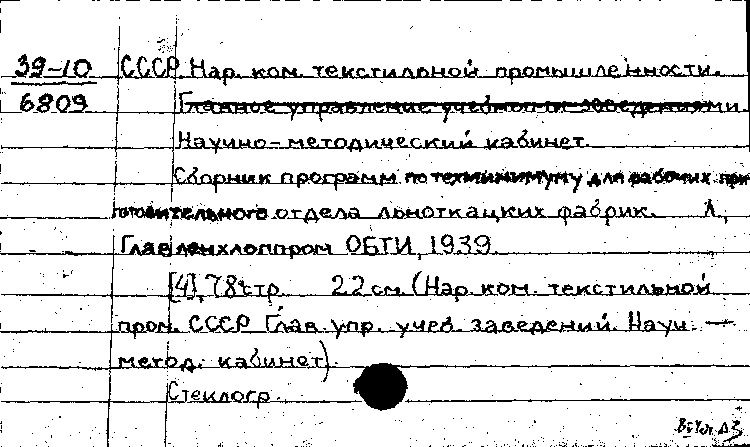 39-10 СССР. Нар. ком. текстильной промышленности.
6809 Главное управление учебными заведениями.
Научно-методический кабинет.
Сборник программ по техминимуму для рабочих при
готовительного отдела льноткацких фабрик. Л.,
Главленхлоппром ОБТИ, 1939.
[4], 78 стр. 22 см. (Нар. ком. текстильной
пром. СССР Глав. упр. учеб. заведений. Науч. —
метод. кабинет).
Стеклогр.